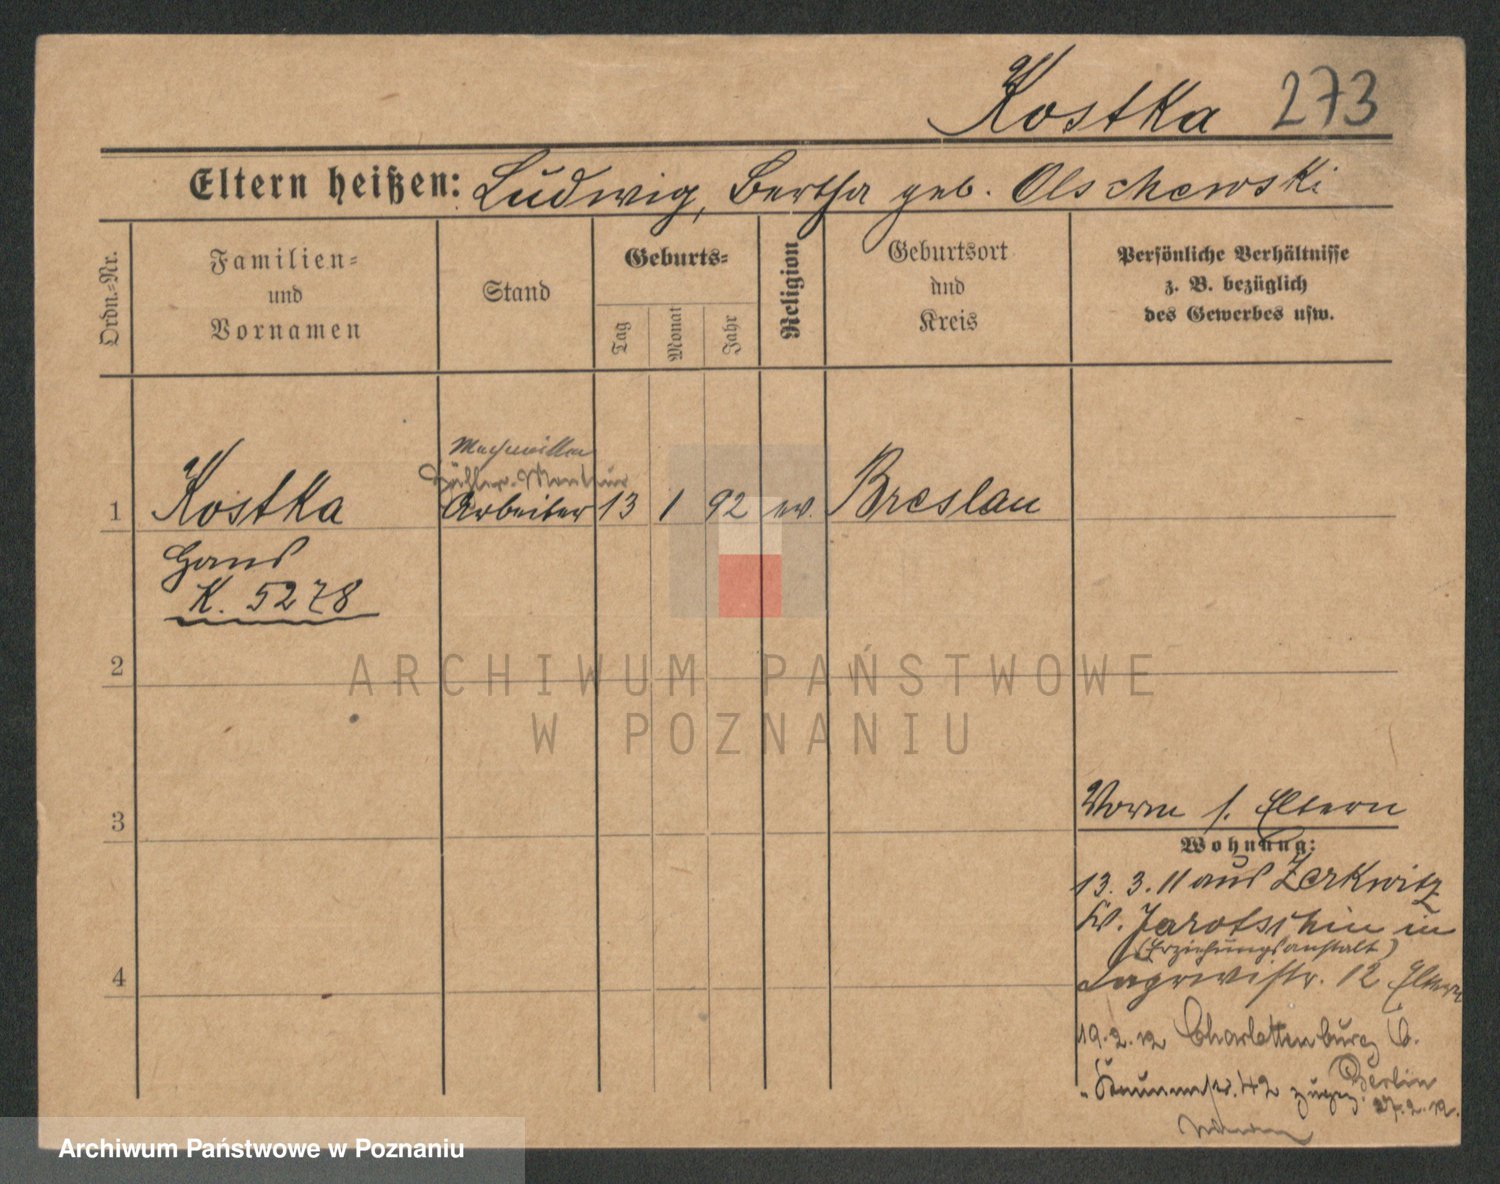 Kostka 273
Eltern heißen: Ludwig, Bertha geb. Olschewski
Ordn.-Nr.
Familien-
und
Vornamen
Stand
Geburts-
Tag
Monat
Jahr
Religion
Geburtsort
und
Kreis
Persönliche Verhältnisse
z. B. bezüglich
des Gewerbes usw.
1 Kostka Arbeiter 13 1 92 ev. Breslau
Hans
K. 5278
2
ARCHIWUM PAŃSTWOWE
W POZNANIU
3
Vorm s. Eltern
Wohnung:
13. 3. 11 aus Zerkwitz
Kr. Jarotschin in
(Erziehungsanstalt)
4
12 Eltern
19. 2. 12 Charlottenburg b.
Berlin
42 zugez. 27. 2. 12.
Archiwum Państwowe w Poznaniu